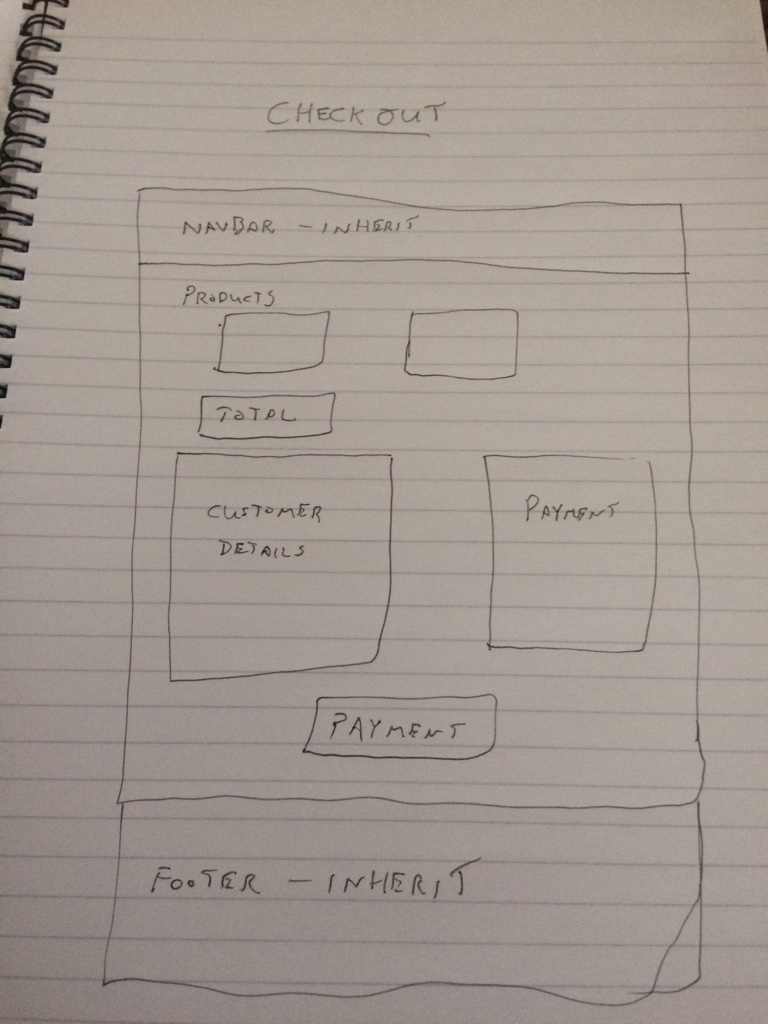 CHECKOUT
NAVBAR - INHERIT
PRODUCTS
TOTAL
CUSTOMER
DETAILS
PAYMENT
PAYMENT
FOOTER - INHERIT